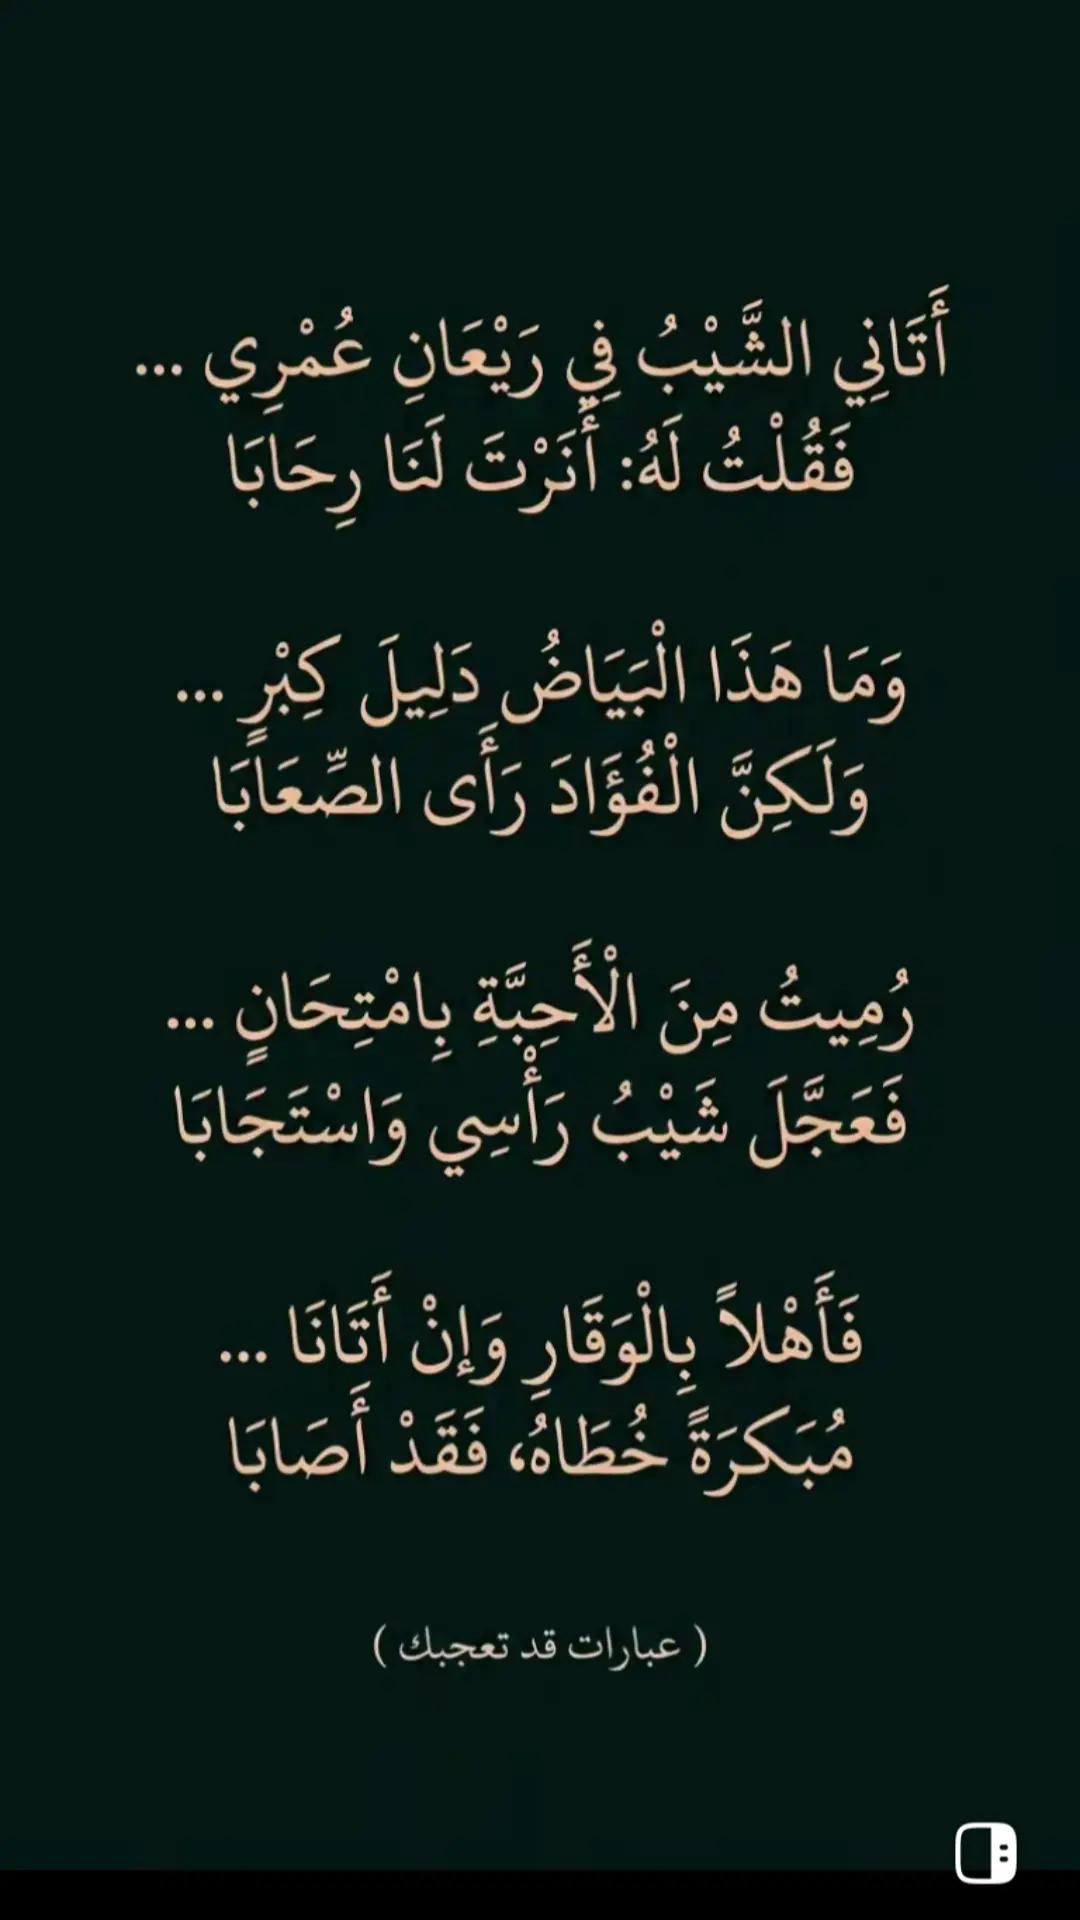 أَتَانِي الشَّيْبُ فِي رَيْعَانِ عُمْرِي ...
فَقُلْتُ لَهُ: أَنَرْتَ لَنَا رِحَابَا
وَمَا هَذَا الْبَيَاضُ دَلِيلَ كِبْرٍ ...
وَلَكِنَّ الْفُؤَادَ رَأَى الصِّعَابَا
رُمِيتُ مِنَ الْأَحِبَّةِ بِامْتِحَانٍ ...
فَعَجَّلَ شَيْبُ رَأْسِي وَاسْتَجَابَا
فَأَهْلاً بِالْوَقَارِ وَإِنْ أَتَانَا ...
مُبَكرَةً خُطَاهُ، فَقَدْ أَصَابَا
( عبارات قد تعجبك )